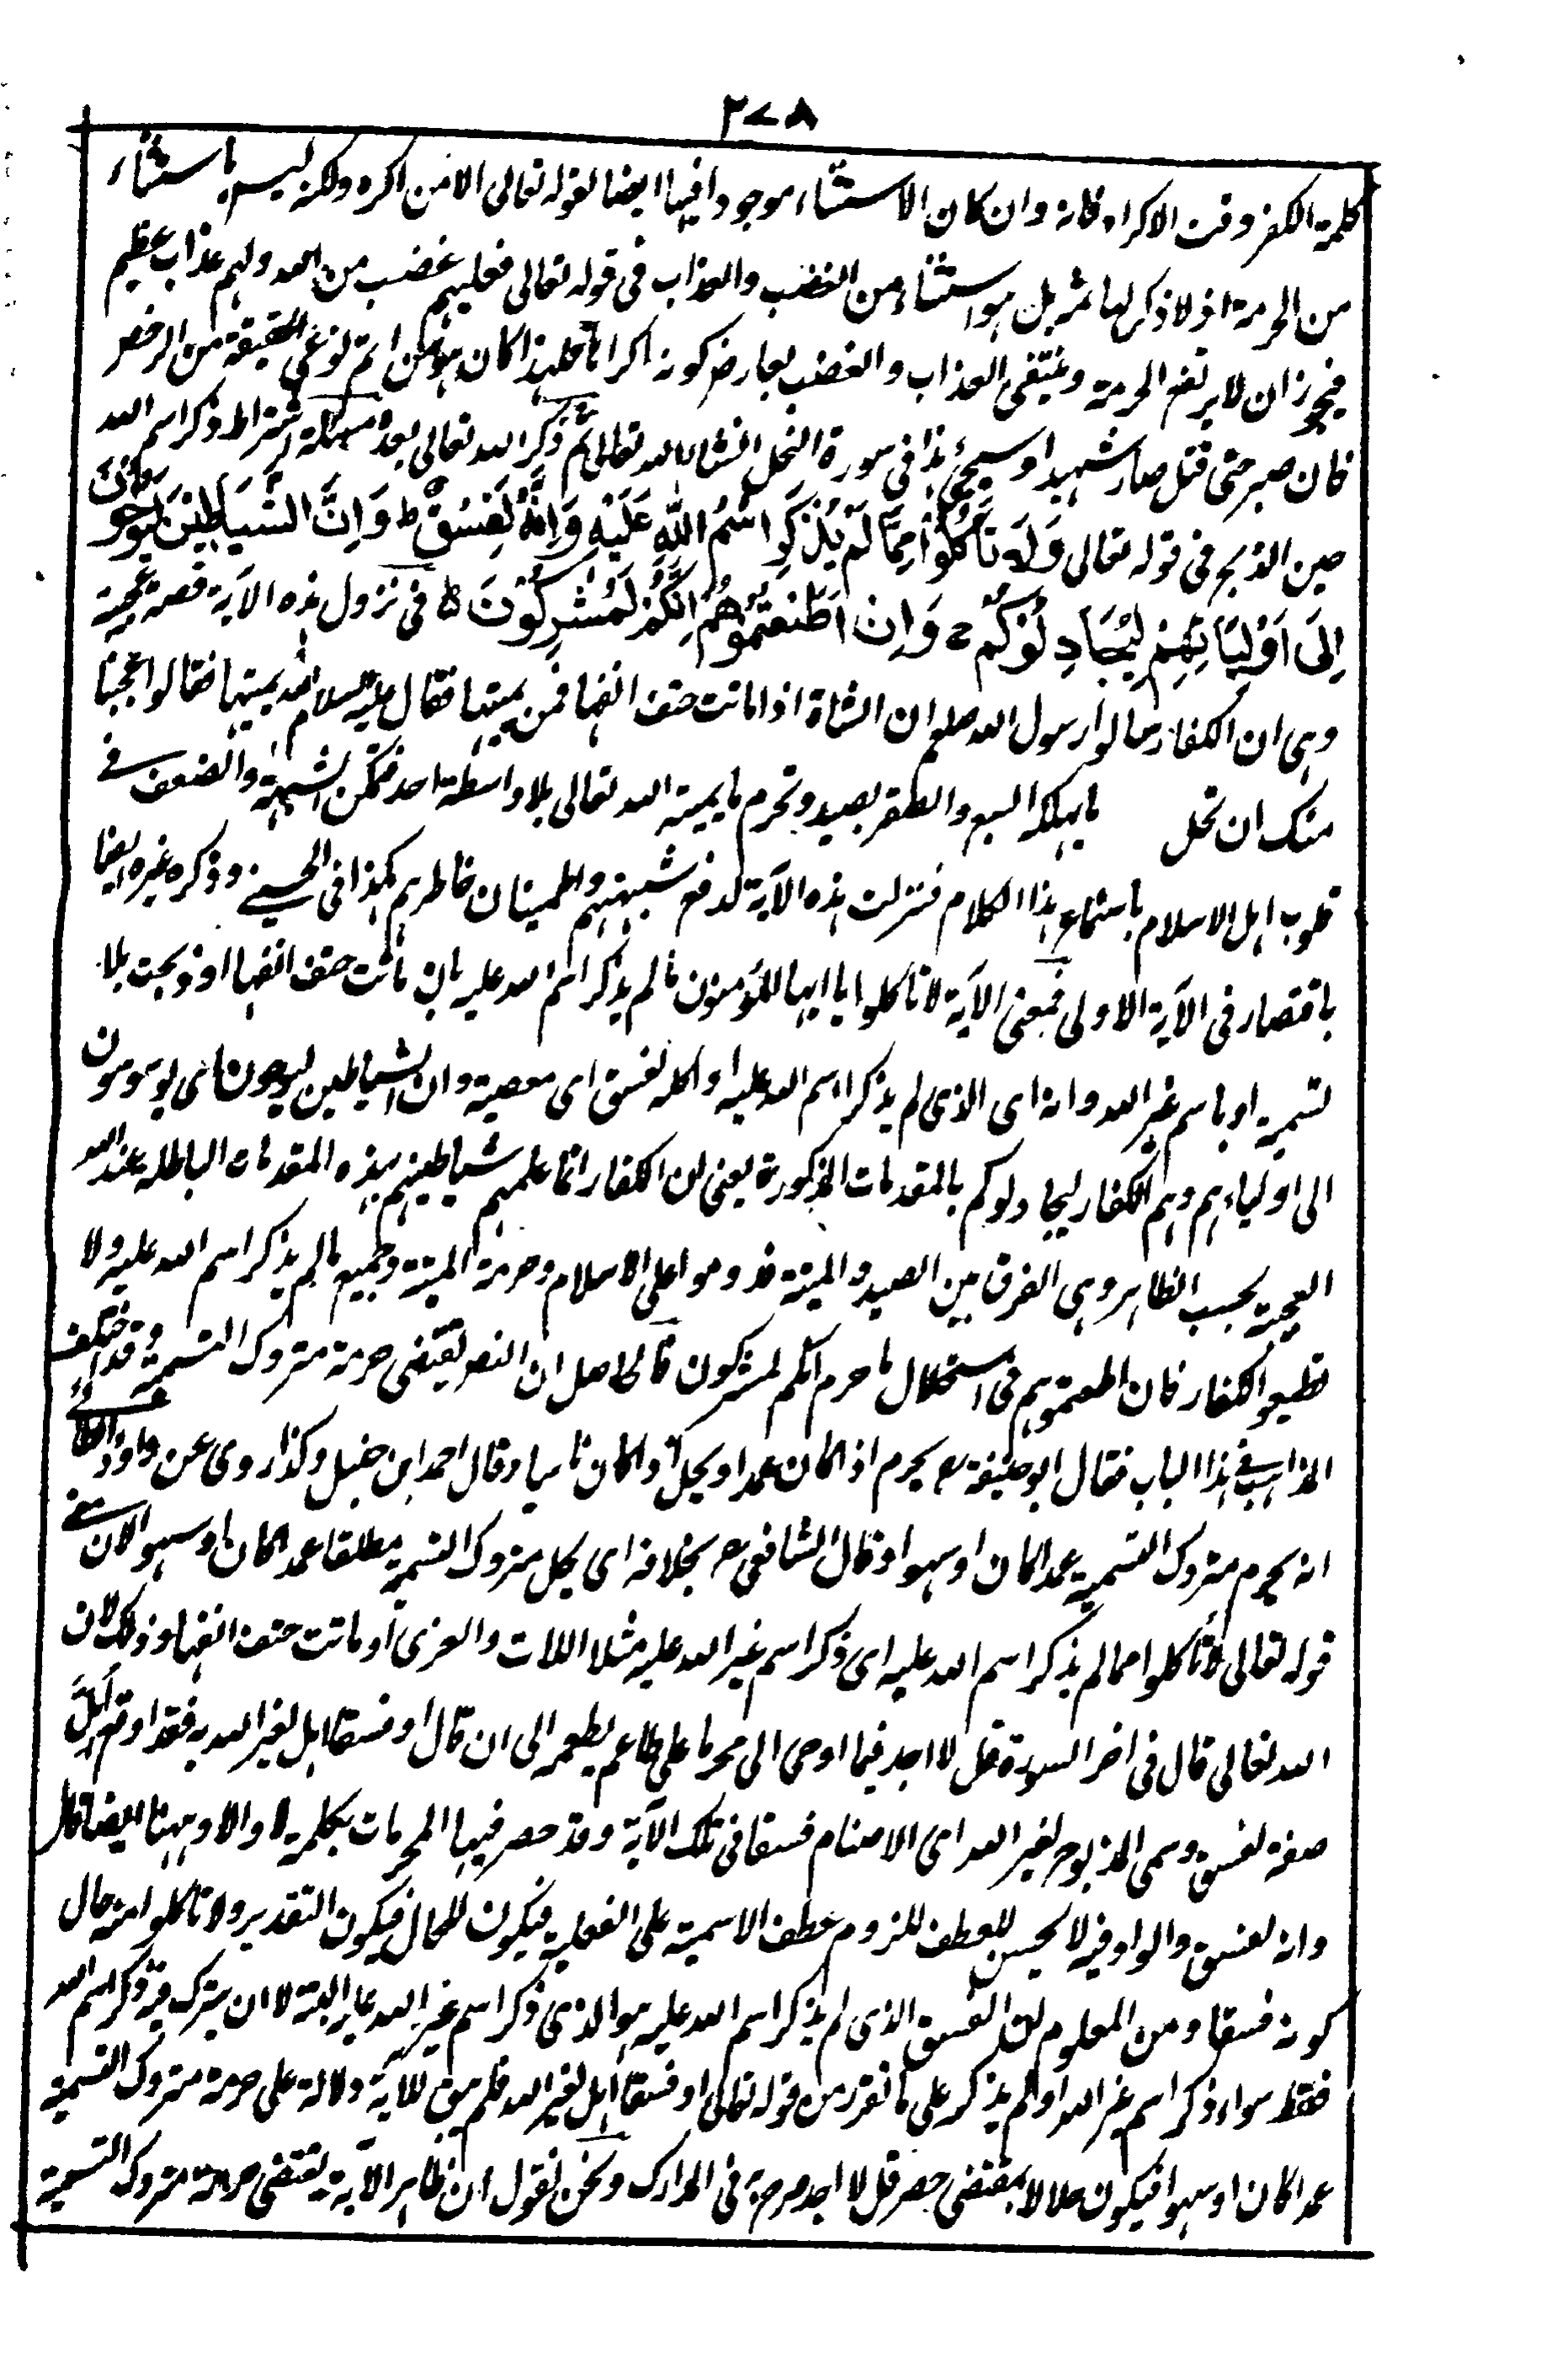 ٣٧٨
كلمة الكفر وقت الاكراه فانه وان كان الاستثناء موجودا فيها ايضا لقوله تعالى الا من اكره ولكنه ليس باستثناء
من الحرمة اذ لا ذكر لها ثمه بل هو استثناء من الغضب والعذاب فى قوله تعالى فعليهم غضب من الله ولهم عذاب عظيم
فيجوز ان لا يرتفع الحرمة وينتفى العذاب والغضب بعارض كونه اكراها فلهذا كان هو من اتم نوعى الحقيقة من الرخص
فان صبر حتى قتل صار شهيدا وسيجئ هذا فى سورة النحل انشاء الله تعالى ثم ذكر الله تعالى بعده مسئلة اشتراط ذكر اسم الله
حين الذبح فى قوله تعالى وَلَا تَأْكُلُوْا مِمَّا لَمْ يُذْكَرِ اسْمُ اللّٰهِ عَلَيْهِ وَاِنَّهٗ لَفِسْقٌ ط وَاِنَّ الشَّيٰطِيْنَ لَيُوْحُوْنَ
اِلٰٓى اَوْلِيَآئِهِمْ لِيُجَادِلُوْكُمْ ج وَاِنْ اَطَعْتُمُوْهُمْ اِنَّكُمْ لَمُشْرِكُوْنَ فى نزول هذه الآية قصة عجيبة
وهى ان الكفار سالوا رسول الله صلعم ان الشاة اذا ماتت حتف انفها فمن يميتها فقال عليه السلام الله يميتها فقالوا عجبا
منك ان تحل ما يهلكه السبع والصقر بصيد وتحرم ما يميته الله تعالى بلا واسطة احد فتمكن الشبهة والضعف فى
قلوب اهل الاسلام باستماع هذا الكلام فنزلت هذه الآية لدفع شبهتهم واطمينان خاطرهم هكذا فى الحسينى وذكره غيره ايضا
باقتصار فى الآية الاولى فمعنى الآية لا تاكلوا يا ايها المؤمنون ما لم يذكر اسم الله عليه بان ماتت حتف انفها او ذبحت بلا
تسمية او باسم غير الله وانه اى الذى لم يذكر اسم الله عليه او اكله لفسق اى معصية وان الشياطين ليوحون اى يوسوسون
الى اولياءهم وهم الكفار ليجادلوكم بالمقدمات المذكورة يعنى ان الكفار انما علمهم شياطينهم بهذه المقدمات الباطلة عند الله
العجيبة بحسب الظاهر وهى الفرق بين الصيد والميتة فدوموا على الاسلام وحرمة الميتة وجميع ما لم يذكر اسم الله عليه ولا
تطيعوا الكفار فان اطعتموهم فى استحلال ما حرم انكم لمشركون فالحاصل ان النص يقتضى حرمة متروك التسمية وقد اختلف
المذاهب فى هذا الباب فقال ابو حنيفة رح يحرم اذا كان عمدا ويحل اذا كان ناسيا وقال احمد ابن حنبل وكذا روى عن داود الطائى
انه يحرم متروك التسمية عمدا كان او سهوا وقال الشافعى رح بخلافه اى يحل متروك التسمية مطلقا عمدا كان او سهوا لان معنى
قوله تعالى لا تاكلوا مما لم يذكر اسم الله عليه اى ذكر اسم غير الله عليه مثلا اللات والعزى او ماتت حتف انفها وذلك لان
الله تعالى قال فى اخر السورة قل لا اجد فيما اوحى الى محرما على طاعم يطعمه الى ان قال او فسقا اهل لغير الله به فقد اوقع اهل
صفة لفسق وسمى المذبوح لغير الله اى الاصنام فسقا فى تلك الآية وقد حصر فيها المحرمات بكلمة لا والا وههنا ايضا قال
وانه لفسق والواو فيه لا يحسن للعطف للزوم عطف الاسمية على الفعلية فيكون للحال فيكون التقدير ولا تاكلوا منه حال
كونه فسقا ومن المعلوم ان الفسق الذى لم يذكر اسم الله عليه هو الذى ذكر اسم غير الله عليه البتة لا ان يترك فيه ذكر اسم الله
فقط سواء ذكر اسم غير الله او لم يذكر على ما تقرر من قوله تعالى او فسقا اهل لغير الله فلم يبق للآية دلالة على حرمة متروك التسمية
عمدا كان او سهوا فيكون حلالا بمقتضى حصر قل لا اجد صرح به فى المدارك ونحن نقول ان ظاهر الآية يقتضى حرمة متروك التسمية